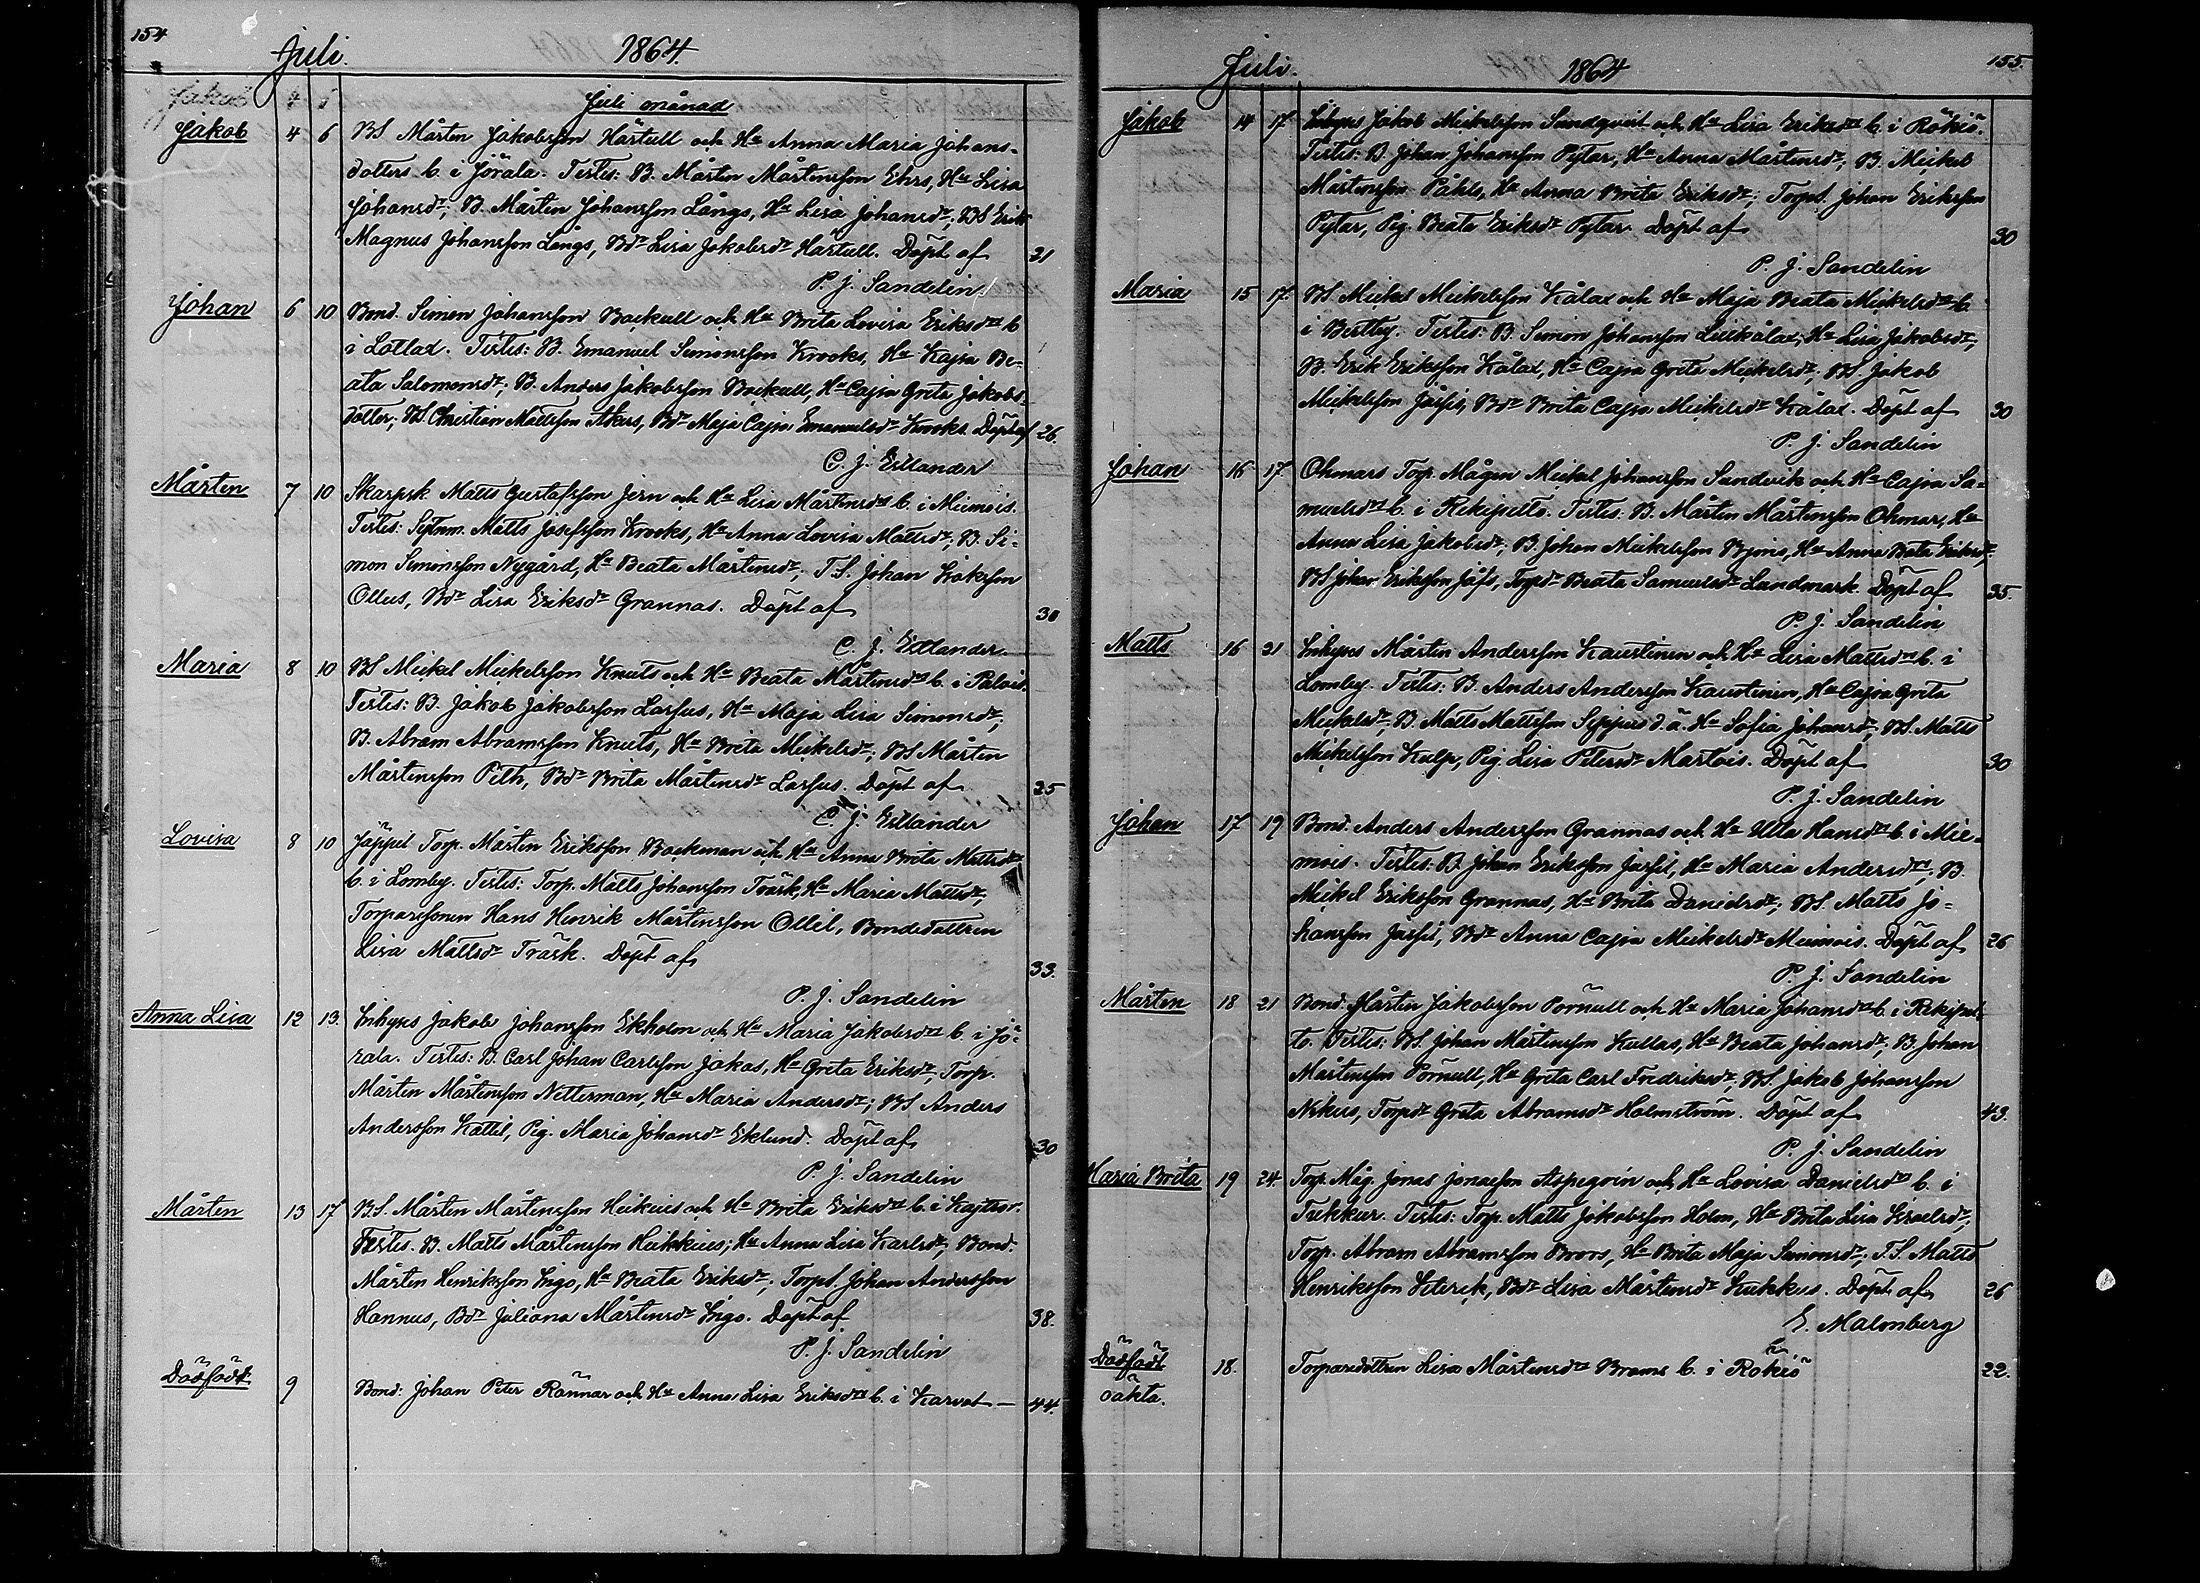 154
Juli. 1864.
Jakob 4 6
Juli månad
Jakob 4 6 BS Mårten Jakobsson Härtull och Hu Anna Maria Johans-
dotters b. i Jörala. Testes: B. Mårten Mårtensson Ehrs, Hu Lisa
Johansdr; B. Mårten Johansson Långs, Hu Lisa Johansdr; BS Erik
Magnus Johansson Långs, Bdr Lisa Jakobsdr Härtull. Döpt af 21
P. J. Sandelin
Johan 6 10 Bond. Simon Johansson Backull och Hu Brita Lovisa Eriksdrs b
i Lotlax. Testes: B. Emanuel Simonsson Krooks, Hu Kajsa Be-
ata Salomonsdr; B. Anders Jakobsson Backull, Hu Cajsa Greta Jakobs-
dotter; BS. Christian Mattsson Akers, Bdr Maja Cajsa Emanuelsdr Krooks. Döpt af 26.
C. J. Estlander
Mårten 7 10 Skarpsk Matts Gustafsson Jern och Hu Lisa Mårtensdrs b. i Miemois.
Testes: Sytnm. Matts Josefsson Krooks, Hu Anna Lovisa Mattsdr; B. Si-
mon Simonsson Nygård, Hu Beata Mårtensdr; T.S. Johan Isaksson
Ollus, Bdr Lisa Eriksdr Grannas. Döpt af 30
C. J. Estlander
Maria 8 10 BS Mickel Mickelsson Knuts och Hu Beata Mårtensdrs b. i Palois.
Testes: B. Jakob Jakobsson Lassus, Hu Maja Lisa Simonsdr;
B. Abram Abramsson Knuts, Hu Brita Mickelsdr; BS Mårten
Mårtensson Peth, Bdr Brita Mårtensdr Lassus. Döpt af 25
C. J. Estlander
Lovisa 8 10 Jäppil Torp. Mårten Eriksson Backman och Hu Anna Brita Mattsdrs
b. i Lomby. Testes: Torp. Matts Johansson Träsk, Hu Maria Mattsdr,
Torparesonen Hans Henrik Mårtensson Ollil, Bondedottren
Lisa Mattsdr Träsk. Döpt af 33.
P. J. Sandelin
Anna Lisa 12 13. Inhyses Jakob Johansson Ekholm och Hu Maria Jakobsdrs b. i Jö-
rala. Testes: B. Carl Johan Carlsson Jakas, Hu Greta Eriksdr, Torp.
Mårten Mårtensson Netterman, Hu Maria Andersdr; BS Anders
Andersson Kattil, Pig. Maria Johansdr Eklund. Döpt af 30
P. J. Sandelin
Mårten 13 17 B.S. Mårten Mårtensson Heikius och Hu Brita Eriksdrs b. i Kaitsor.
Testes. B. Matts Mårtensson Heikkius; Hu Anna Lisa Karlsdr, Bond.
Mårten Henriksson Ingo, Hu Beata Eriksdr, Torps. Johan Andersson
Hannus, Bdr Juliana Mårtensdr Ingo. Döpt af 38.
P. J. Sandelin
Dödfödt 9 Bond: Johan Peter Rännar och Hu Anna Lisa Eriksdrs b. i Karvat — 44.
155.
Juli. 1864
Jakob 14 17 Inhyses Jakob Mickelsson Sundqvist och Hu Lisa Eriksdrs b. i Rökiö.
Testes: B. Johan Johansson Pytar, Hu Anna Mårtensdr; B. Mickel
Mårtensson Påhls, Hu Anna Brita Eriksdr; Torps. Johan Eriksson
Pytar, Pig. Beata Eriksdr Pytar. Döpt af 30
P. J. Sandelin
Maria 15 17. BS Mickel Mickelsson Kålax och Hu Maja Beata Mickelsdrs b.
i Bertby. Testes: B. Simon Johansson Lillkålax, Hu Lisa Jakobsdr;
B. Erik Eriksson Kålax, Hu Cajsa Greta Mickelsdr; BS. Jakob
Mickelsson Jåfsis, Bdr Brita Cajsa Mickelsdr Kålax. Döpt af 30
P. J. Sandelin
Johan 16 17 Ohmars Torp. Mågen Mickel Johansson Sandvik och Hu Cajsa Sa-
muelsdrs b. i Rekipelto. Testes: B. Mårten Mårtensson Ohmar, Hu
Anna Lisa Jakobsdr, B. Johan Mickelsson Bjons, Hu Anna Beata Eriksdr,
BS Johan Eriksson Jåfs, Torpdr Beata Samuelsdr Landmark. Döpt af 35.
P. J. Sandelin
Matts 16 21 Inhyses Mårten Andersson Kaustinen och Hu Lisa Mattsdrs b. i
Lomby. Testes: B. Anders Andersson Kaustinen, Hu Cajsa Greta
Mickelsdr, B. Matts Mattsson Seppus d.ä. Hu Sofia Johansdr, BS. Matts
Mickelsson Kulp, Pig. Lisa Petersdr Martois. Döpt af 30
P. J. Sandelin
Johan 17 19 Bond. Anders Andersson Grannas och Hu Ulla Hansdrs b. i Mie-
mois. Testes: B Johan Eriksson Jåfsil, Hu Maria Andersdr, B.
Mickel Eriksson Grannas, Hu Brita Danielsdr; BS. Matts Jo-
hansson Jåfsil, Bdr Anna Cajsa Mickelsdr Miemois. Döpt af 26
P. J. Sandelin
Mårten 18 21 Bond. Mårten Jakobsson Pörnull och Hu Maria Johansdrs b. i Rekipel-
to. Testes: BS. Johan Mårtensson Kullas, Hu Beata Johansdr; B. Johan
Mårtensson Pörnull, Hu Greta Carl Fredriksdr, BS. Jakob Johansson
Nikus, Torpdr Greta Abramsdr Holmström. Döpt af 43.
P. J. Sandelin
Maria Brita 19 24. Torp. Måg. Jonas Jonasson Aspegrén och Hu Lovisa Danielsdrs b. i
Tukkur. Testes: Torp. Matts Jakobsson Holm, Hu Brita Lisa Israelsdr;
Torp. Abram Abramsson Broos, Hu Brita Maja Simonsdr; T.S. Matts
Henriksson Seterik, Bdr Lisa Mårtensdr Kukkus. Döpt af 26
E. Malmberg
Dödfödt 18. Torparedottren Lisa Mårtensdrs Brams b. i Rökiö 22.
oäkta.